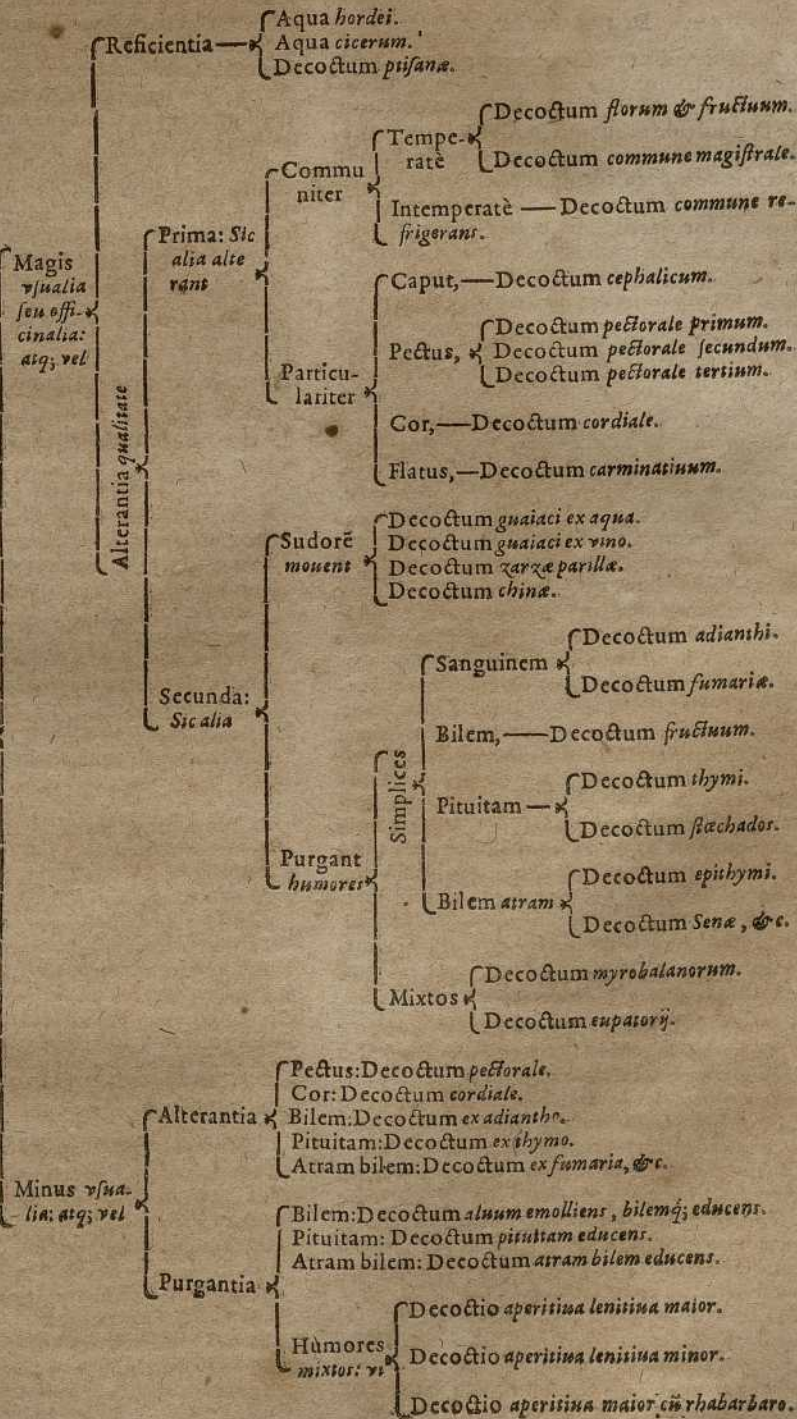 Reficientia
Aqua hordei.
Aqua cicerum.
Decoctum ptisanæ.
Magis
vsualia
seu offi-
cinalia:
atq; vel
Alterantia qualitate
Prima: Sic
alia alte
rant
Commu
niter
Tempe-
ratè
Decoctum florum & fructuum.
Decoctum commune magistrale.
Intemperatè — Decoctum commune re-
frigerans.
Particu-
lariter
Caput,—Decoctum cephalicum.
Pectus,
Decoctum pectorale primum.
Decoctum pectorale secundum.
Decoctum pectorale tertium.
Cor,—Decoctum cordiale.
Flatus,—Decoctum carminatiuum.
Secunda:
Sic alia
Sudorē
mouent
Decoctum guaiaci ex aqua.
Decoctum guaiaci ex vino.
Decoctum zarzæ parillæ.
Decoctum chinæ.
Purgant
humores
Simplices
Sanguinem
Decoctum adianthi.
Decoctum fumariæ.
Bilem,—Decoctum fructuum.
Pituitam
Decoctum thymi.
Decoctum stæchados.
Bilem atram
Decoctum epithymi.
Decoctum Senæ, &c.
Mixtos
Decoctum myrobalanorum.
Decoctum eupatorij.
Minus vsua-
lia: atq; vel
Alterantia
Pectus: Decoctum pectorale.
Cor: Decoctum cordiale.
Bilem: Decoctum ex adiantho.
Pituitam: Decoctum ex thymo.
Atram bilem: Decoctum ex fumaria, &c.
Purgantia
Bilem: Decoctum aluum emolliens, bilemq́; educens.
Pituitam: Decoctum pituitam educens.
Atram bilem: Decoctum atram bilem educens.
Humores
mixtos: vt
Decoctio aperitiua lenitiua maior.
Decoctio aperitiua lenitiua minor.
Decoctio aperitiua maior cū rhabarbaro.